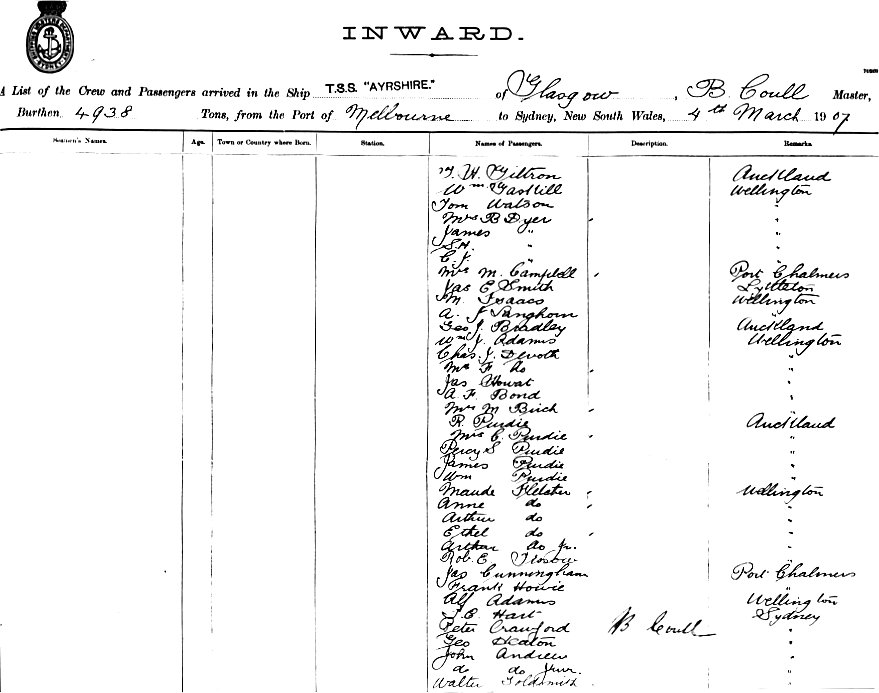 INWARD.
A List of the Crew and Passengers arrived in the Ship T.S.S. "AYRSHIRE." of Glasgow, B. Coull Master,
Burthen 4938 Tons, from the Port of Melbourne to Sydney, New South Wales, 4th March 1907
Seamen's Names. Age. Town or Country where Born. Station. Names of Passengers. Description. Remarks
W. Auckland
Wm Gaskill Wellington
Tom Watson "
Mrs B Dyer "
James " "
S.H. " "
C. J. " "
Mrs M. Campbell Port Chalmers
Jas E Smith Lyttleton
M. Isaacs Wellington
A. J "
Geo J. Bradley Auckland
Wm J. Adams Wellington
Chas. J. "
Mrs F do "
Jas Howat "
A. F. Bond "
Mrs M Birch "
R. Purdie Auckland
Mrs C. Purdie "
Percy S Purdie "
James Purdie "
Wm Purdie "
Maude Wellington
Anne do "
Arthur do "
Ethel do "
Arthur do Jr. "
Rob. E. "
Jas Cunningham Port Chalmers
Frank Howie "
Alf Adams Wellington
J. E. Hart Sydney
Peter Crawford B Coull "
Geo Heaton "
John Andrew "
do do Junr. "
Walter Goldsmith "